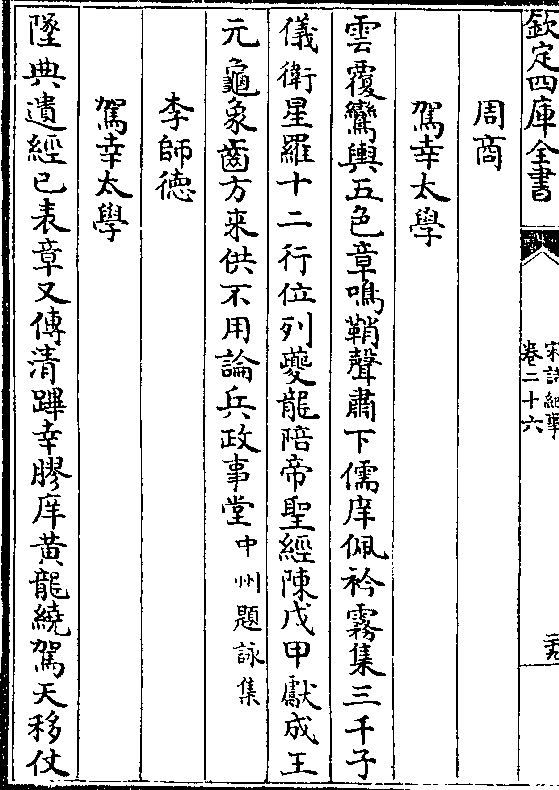 欽定四庫全書
宋詩紀事
卷二十六
周商
駕幸太學
雲覆鸞輿五色章鳴鞘聲肅下儒庠佩衿霧集三千子
儀衛星羅十二行位列夔龍陪帝聖經陳戊甲獻成王
元龜象齒方来供不用論兵政事堂中州題詠集
李師徳
駕幸太學
墜典遺經已表章又傳清蹕幸膠庠黃龍繞駕天移仗